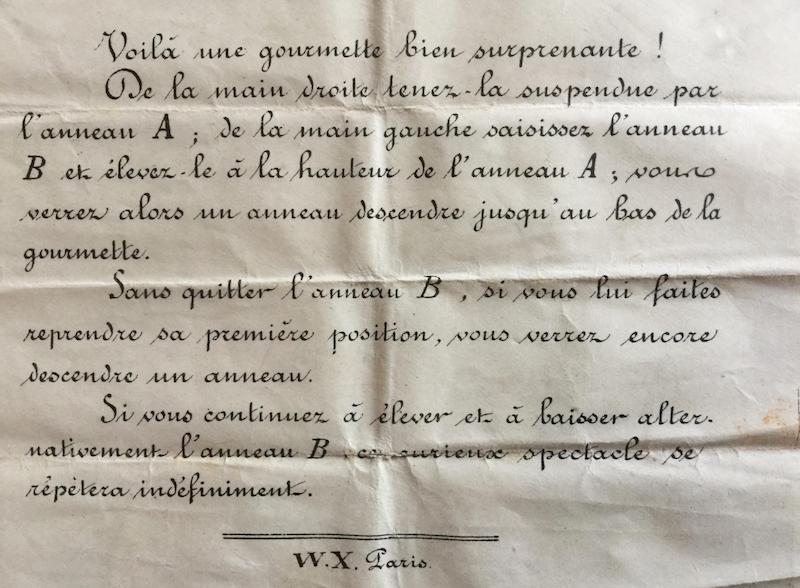 Voilà une gourmette bien surprenante !
De la main droite tenez-la suspendue par
l'anneau A ; de la main gauche saisissez l'anneau
B et élevez-le à la hauteur de l'anneau A ; vous
verrez alors un anneau descendre jusqu'au bas de la
gourmette.
Sans quitter l'anneau B , si vous lui faites
reprendre sa première position, vous verrez encore
descendre un anneau.
Si vous continuez à élever et à baisser alter-
nativement l'anneau B , ce curieux spectacle se
répétera indéfiniment.
W.X. Paris.